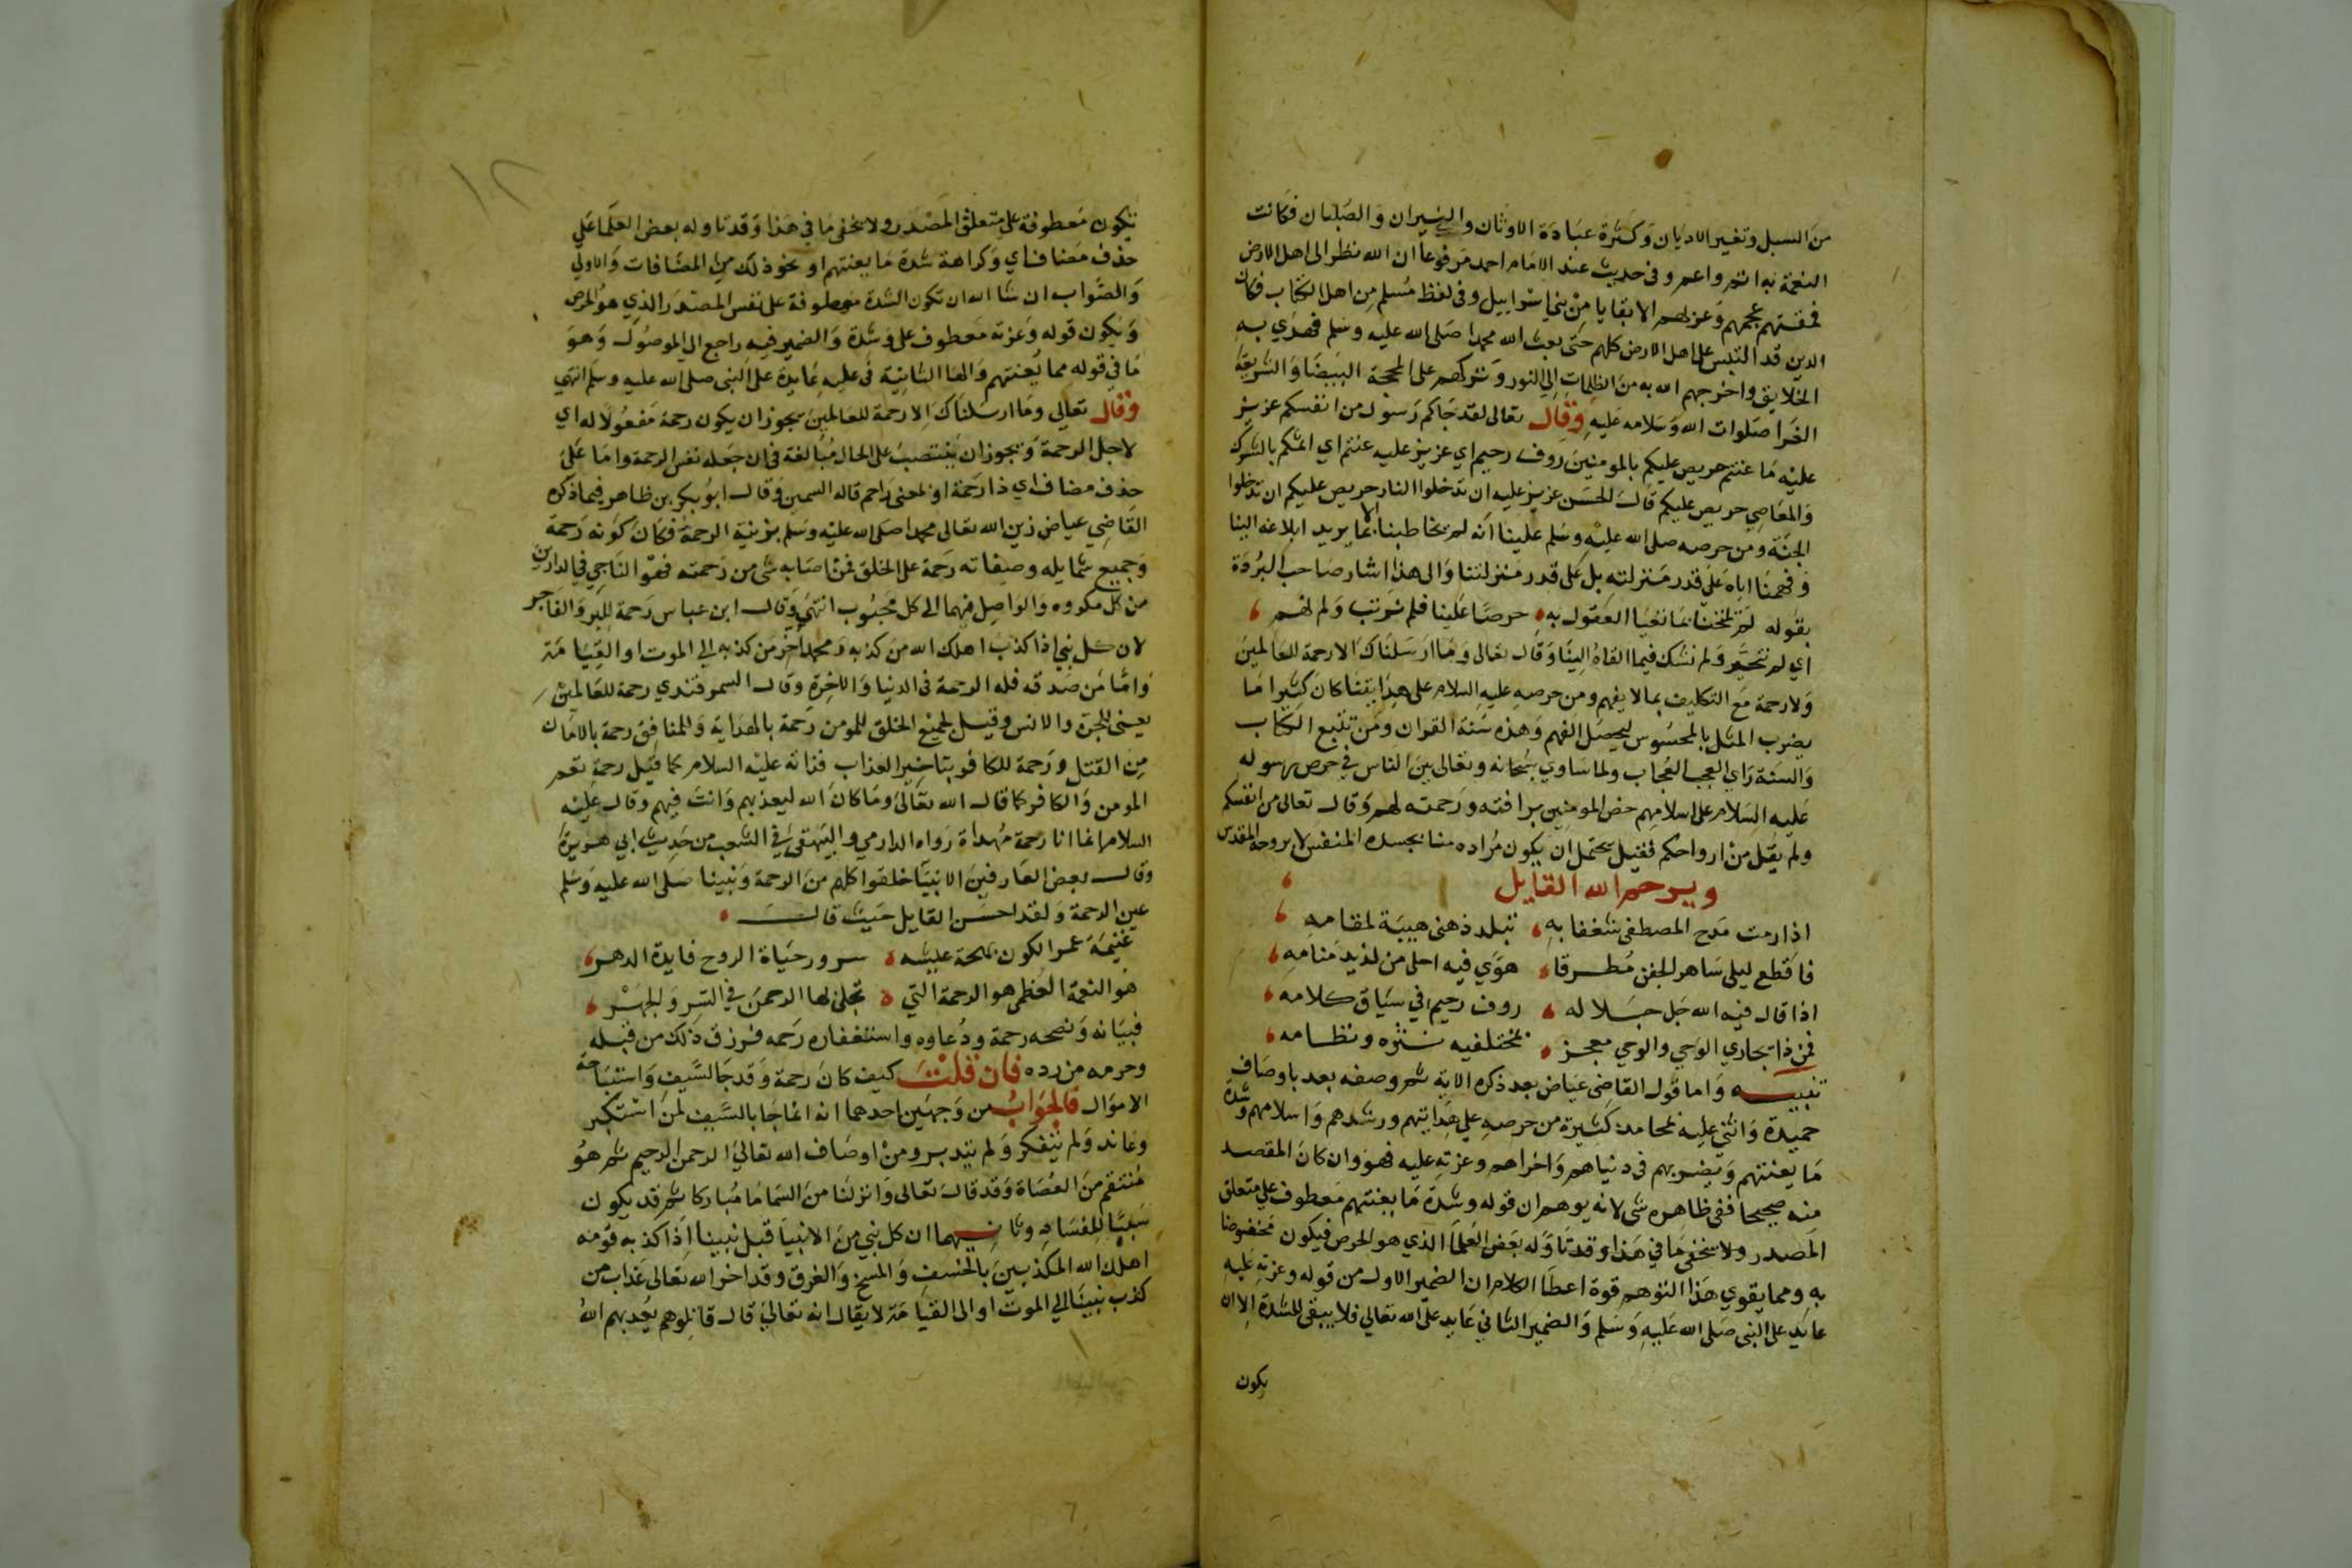 من السبل وتغيير الاديان وكثرة عبادة الاوثان والنيران والصلبان فكانت
النعمة به اتم واعم وفى حديث عند الامام احمد مرفوعا ان الله نظر الى اهل الارض
فمقتهم عجمهم وعربهم الا بقايا من بني اسراييل وفى لفظ مسلم من اهل الكتاب فكان
الدين قد التبس على اهل الارض كلهم حتى بعث الله محمدا صلى الله عليه وسلم فهدي به
الخلايق واخرجهم الله به من الظلمات الي النور وتركهم على المحجة البيضا والشريعة
الغرا صلوات الله وسلامه عليه وقال تعالى لقد جاكم رسول من انفسكم عزيز
عليه ما عنتم حريص عليكم بالمومنين روف رحيم اي عزيز عليه عنتم اي اثمكم بالشرك
والمعاصي حريص عليكم قال الحسن عزيز عليه ان تدخلوا النار حريص عليكم ان تدخلوا
الجنة ومن حرصه صلى الله عليه وسلم علينا انه لم يخاطبنا الا بما يريد ابلاغه الينا
وفهمنا اياه على قدر منزلته بل على قدر منزلتنا والى هذا اشار صاحب البردة
بقوله لم يمتحنا بما تعيا العقول به حرصا علينا فلم نرتب ولم نهم
اي لم نتحير ولم نشك فيما القاه الينا وقال تعالى وما ارسلناك الا رحمة للعالمين
ولا رحمة مع التكليف بما لا يفهم ومن حرصه عليه السلام على هدايتنا كان كثيرا ما
يضرب المثل بالمحسوس ليحصل الفهم وهذه سنة القران ومن تتبع الكتاب
والسنة راي العجب العجاب ولما ساوي سبحانه وتعالى بين الناس في حرص رسوله
عليه السلام على اسلامهم خص المومنين برافته ورحمته لهم وقال تعالى من انفسكم
ولم يقل من ارواحكم فقيل يحتمل ان يكون مراده منا بجسده المنفس لا بروحه المقدس
ويرحم الله القايل
اذا رمت مدح المصطفى شغفا به تبلد ذهنى هيبة لمقامه
فاقطع ليلى ساهر الجفن مطرقا هوي فيه احلى من لذيذ منامه
اذا قال فيه الله جل جلاله روف رحيم في سياق كلامه
فمن ذا يجاري الوحي والوحي معجز بمختلفيه نثره ونظامه
تنبيه واما قول القاضى عياض بعد ذكره الاية ثم وصفه بعد باوصاف
حميدة واثنى عليه بمحامد كثيرة من حرصه علي هدايتهم ورشدهم واسلامهم وشدة
ما يعنتهم ويضر بهم فى دنياهم واخراهم وعزته عليه فهو وان كان المقصد
منه صحيحا ففى ظاهره شى لانه يوهم ان قوله وشدة ما يعنتهم معطوف على متعلق
المصدر ولا يخفى ما في هذا وقد تاوله بعض العلما الذي هو الحرص فيكون مخفوضا
به ومما يقوي هذا التوهم قوة اعطا الكلام ان الضمير الاول من قوله وعزته عليه
عايد على النبى صلى الله عليه وسلم والضمير الثاني عايد على الله تعالي فلا يبقى للشدة الا ان
يكون
١٢
تكون معطوفة على متعلق المصدر ولا يخفى ما في هذا وقد تاوله بعض العلما على
حذف مضاف اي وكراهة شدة ما يعنتهم او نحو ذلك من المضافات والاولي
والصواب ان شا الله ان تكون الشدة معطوفة على نفس المصدر الذي هو الحرص
ويكون قوله وعزته معطوف على وشدة والضمير فيه راجع الي الموصول وهو
ما في قوله مما يعنتهم والها الثانية فى عليه عايدة على النبى صلى الله عليه وسلم انتهي
وقال تعالى وما ارسلناك الا رحمة للعالمين يجوز ان يكون رحمة مفعولا له اي
لاجل الرحمة ويجوز ان ينتصب على الحال مبالغة فى ان جعله نفس الرحمة واما على
حذف مضاف اي ذا رحمة او بمعنى راحم قاله السمين وقال ابو بكر بن طاهر فيما ذكره
القاضي عياض زين الله تعالى محمدا صلى الله عليه وسلم بزينة الرحمة فكان كونه رحمة
وجميع شمايله وصفاته رحمة على الخلق فمن اصابه شى من رحمته فهو الناجي في الدارين
من كل مكروه والواصل فيهما الى كل محبوب انتهى وقال ابن عباس رحمة للبر والفاجر
لان كل نبي اذا كذب اهلك الله من كذبه ومحمد اخر من كذبه الي الموت او القيامة
واما من صدقه فله الرحمة فى الدنيا والاخرة وقال السمرقندي رحمة للعالمين
يعنى للجن والانس وقيل لجميع الخلق للمومن رحمة بالهداية وللمنافق رحمة بالامان
من القتل ورحمة للكافر بتاخير العذاب فذاته عليه السلام كما قيل رحمة تعم
المومن والكافر كما قال الله تعالى وما كان الله ليعذبهم وانت فيهم وقال عليه
السلام انما انا رحمة مهداة رواه الدارمي والبيهقى في الشعب من حديث ابي هريرة
وقال بعض العارفين الانبيا خلقوا كلهم من الرحمة ونبينا صلى الله عليه وسلم
عين الرحمة ولقد احسن القايل حيث قال
غنيمة عمر الكون بهجة عيشه سرور حياة الروح فايدة الدهر
هو النعمة العظمى هو الرحمة التي تجلى لها الرحمن في السر والجهر
فبيانه ونصحه رحمة ودعاوه واستغفاره رحمه فرزق ذلك من قبله
وحرمه من رده فان قلت كيف كان رحمة وقد جا بالسيف واستباحة
الاموال فالجواب من وجهين احدهما انه انما جا بالسيف لمن استكبر
وعاند ولم يتفكر ولم يتدبر ومن اوصاف الله تعالى الرحمن الرحيم ثم هو
منتقم من العصاة وقد قال تعالى وانزلنا من السما ما مباركا ثم قد يكون
سببا للفساد وثانيهما ان كل نبي من الانبيا قبل نبينا اذا كذبه قومه
اهلك الله المكذبين بالخسف والمسخ والغرق وقد اخر الله تعالى عذاب من
كذب نبينا الي الموت او الى القيامة لا يقال انه تعالى قال قاتلوهم يعذبهم الله